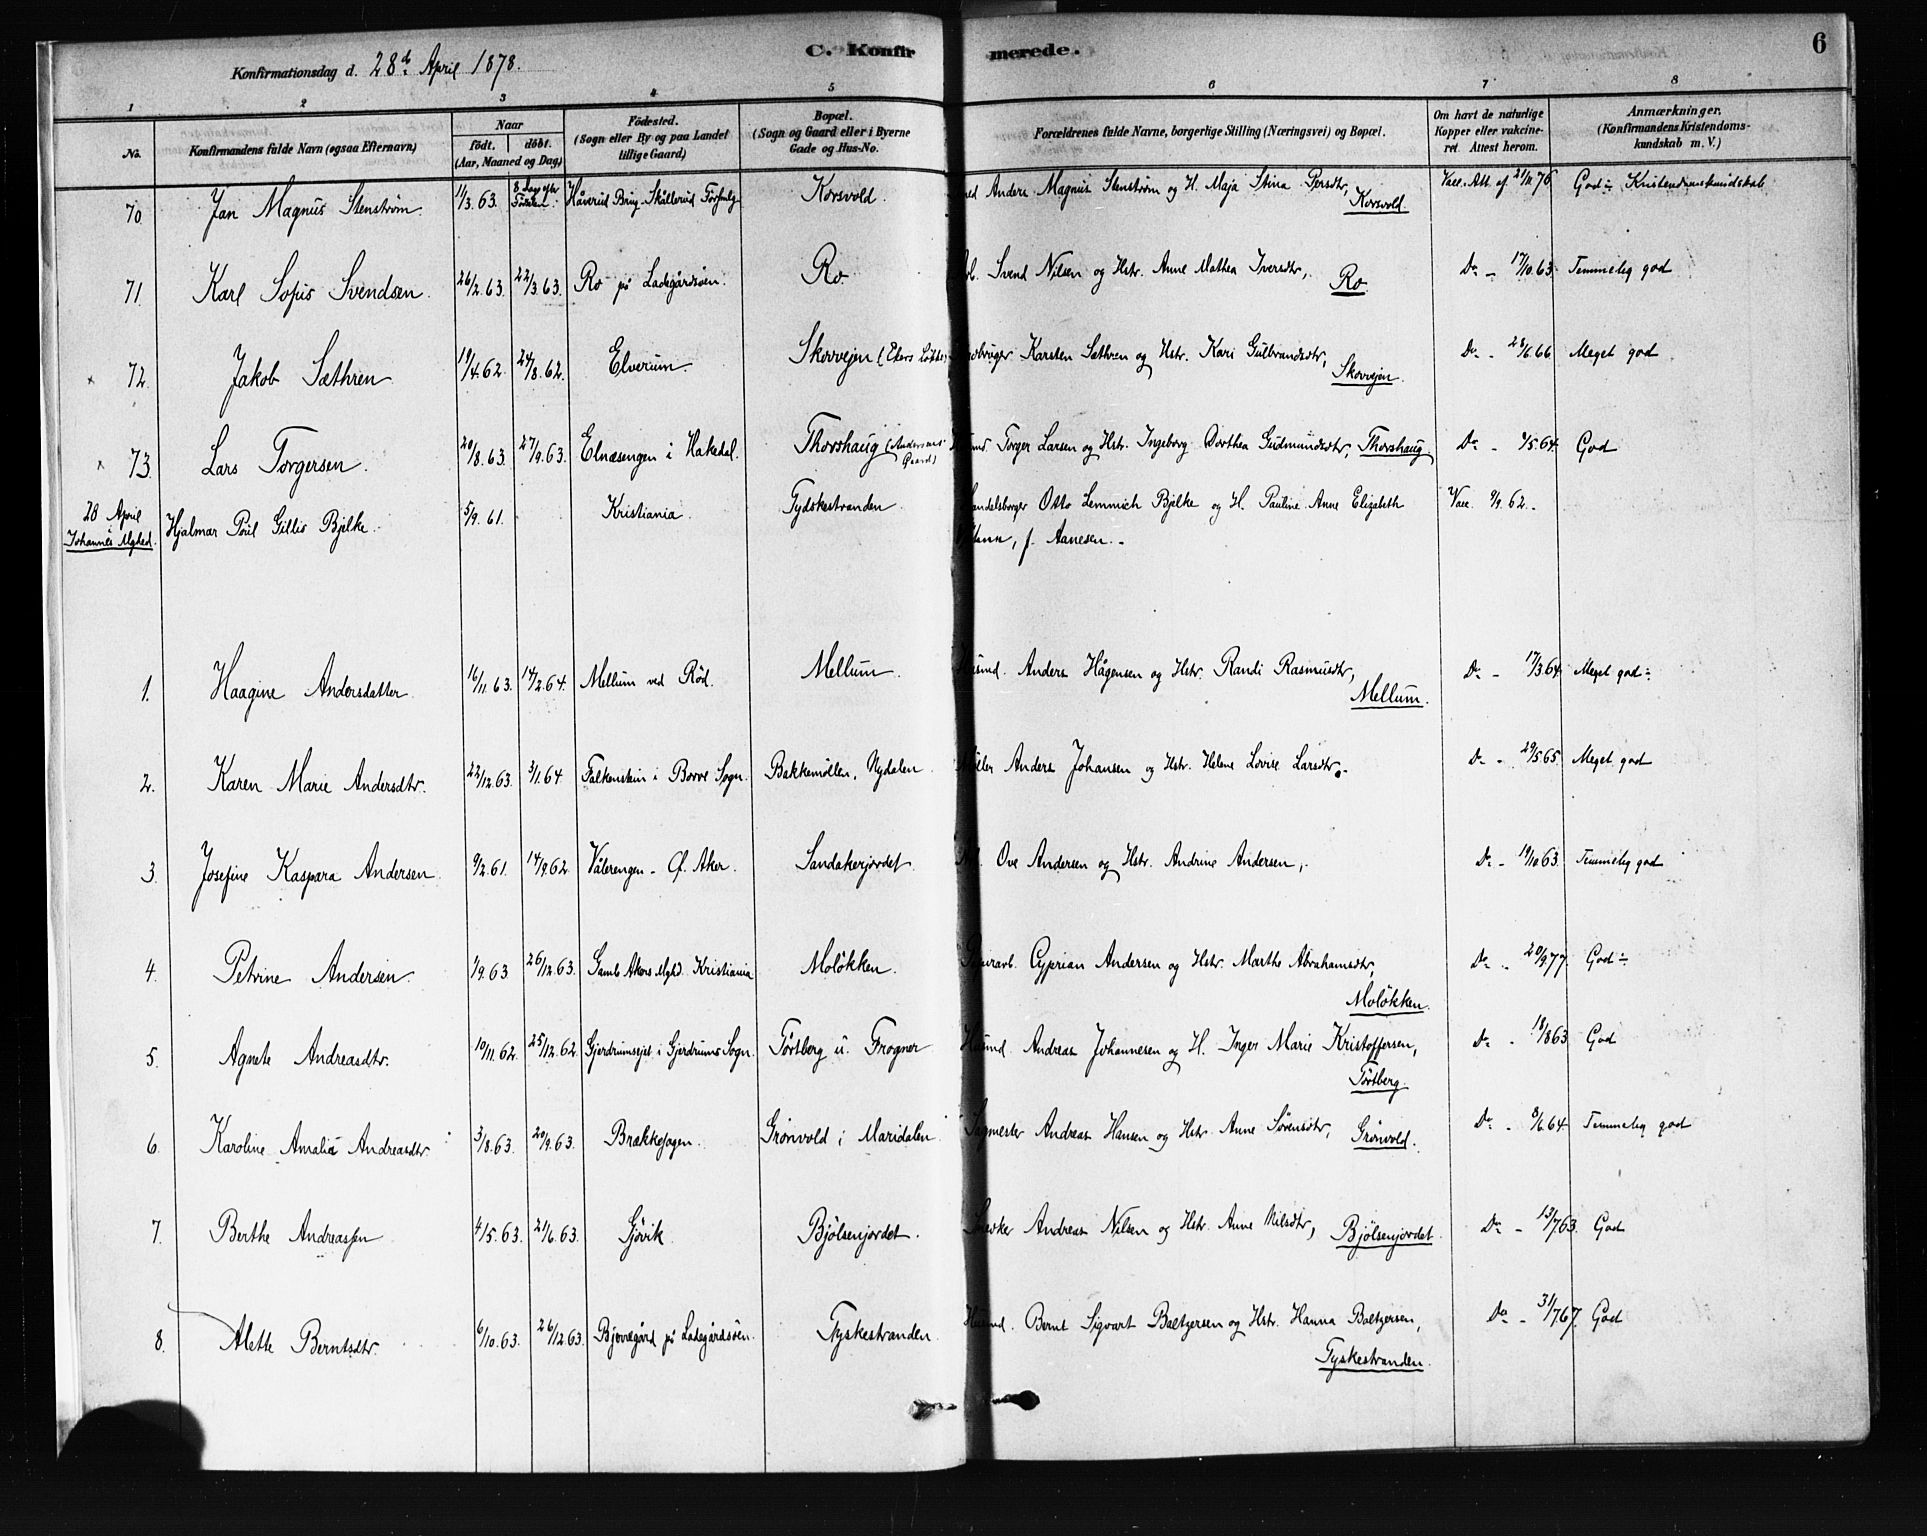 C. Konfirmerede.
6
Konfirmationsdag d. 28de April 1878.
1 2 3 4 5 6 7 8
No. Konfirmandens fulde Navn (ogsaa Efternavn) Naar født. døbt. (Aar, Maaned og Dag) Fødested. (Sogn eller By og paa Landet tillige Gaard) Bopæl. (Sogn og Gaard eller i Byerne Gade og Hus-No. Forældrenes fulde Navne, borgerlige Stilling (Næringsvei) og Bopæl. Om havt de naturlige Kopper eller vakcineret. Attest herom. Anmærkninger. (Konfirmandens Kristendomskundskab m. V.)
70 Jan Magnus Stenstrøm 11/3.63. 8 Dage efter Fødselen Håverud Brug Skållerud Korsvold. Anders Magnus Stenstrøm og H. Maja Stina Persdtr, Korsvold. Vacc. Att. af 21/11 76 God Kristendomskundskab
71. Karl Sofus Svendsen. 26/2.63. 22/3.63. Ro på Ladegårdsøen. Ro. Svend Nilsen og Hstr. Anne Mathea Iversdtr, Ro. Do - 17/10.63. Temmelig god
72. Jakob Sæthren 19/4.62. 24/8.62. Elverum. Skovvejen (Ekers Løkke) Karsten Sæthren og Hstr. Kari Gulbrandsdtr, Skovvejen. Do - 28/6.66. Meget god
73. Lars Torgersen. 20/8.63. 27/9.63. Elnæsengen i Hakedal. Thorshaug (Andersens Gaard) Torger Larsen og Hstr. Ingeborg Dorthea Gudmundsdtr, Thorshaug. Do - 9/5.64. God
28 April i Johannes Mghed. Hjalmar Poul Gillis Bjelke. 5/9.61. Kristiania. Tydskestranden Handelsborger Otto Lemmich Bjelke og H. Pauline Anne Elizabeth
f. Aanesen. - Vacc. 9/9.62.
1. Haagine Andersdatter 16/11.63. 14/2.64. Mellum ved Rød. Mellum. Husmd. Anders Hågensen og Hstr. Randi Rasmusdtr, Mellum. Do - 17/3.64. Meget god
2. Karen Marie Andersdtr. 22/12.63. 3/1.64 Falkenstein i Borre Sogn. Bakkemøllen, Nydalen. Møller Anders Johansen og Hstr. Helene Lovise Larsdtr. Do - 29/5.65. Meget god
3. Josefine Kaspara Andersen. 9/2.61. 14/9.62. Vålerengen - Ø. Aker. Sandakerjordet Ove Andersen og Hstr. Andrine Andersen, Do - 19/10.63. Temmelig god
4. Petrine Andersen. 1/9.63 26/12.63. Gamle Akers Mghd. Kristiania Moløkken. Cyprian Andersen og Hstr. Marthe Abrahamsdtr, Moløkken. Do - 20/9.77. God
5. Agnete Andreasdtr. 10/11.62. 25/12.62. Gjerdrumsejet i Gjerdrums Sogn. Tørtberg u. Frogner Husmd. Andreas Johannesen og H. Inger Marie Kristoffersen, Tørtberg. Do - 18/8.63 God
6. Karoline Amalie Andreasdtr. 3/8.63. 20/9.63. Brækkesagen. Grønvold i Maridalen Sagmester Andreas Hansen og Hstr. Anne Sørensdtr, Grønvold. Do - 8/6.64 Temmelig god
7. Berthe Andreassen 4/5.63. 21/6.63. Gjøvik Bjølsenjordet. Snedker Andreas Nilsen og Hstr. Anne Nilsdtr, Bjølsenjordet. Do - 13/7.63. God
8. Alette Berntsdtr. 6/10.63. 26/12.63. Bjovægård på Ladegårdsøen. Tyskestranden Husmd. Bernt Sigvart Baltzersen og Hstr. Hanna Baltzersen, Tyskestranden. Do - 31/7.67. God